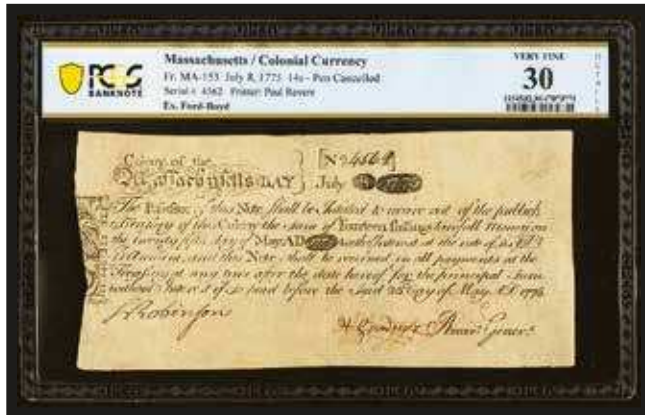 PCGS
BANKNOTE
Massachusetts / Colonial Currency
Fr. MA-153 July 8, 1775 14s - Pen Cancelled
Serial # 4562 Printer: Paul Revere
Ex. Ford-Boyd
VERY FINE
30
DETAILS
Colony of the
Massachusetts BAY
July
The Possessor of this Note shall be Intitled to receive out of the publick
Treasury of this Colony the sum of fourteen shillings Lawful Money on
the twenty fifth day of May AD with Interest at the rate of six
Annum, and this Note shall be received in all payments at the
Treasury at any time after the date hereof for the principal Sum
without Interest if so paid before the said 25 Day of May AD 1776
Robinson